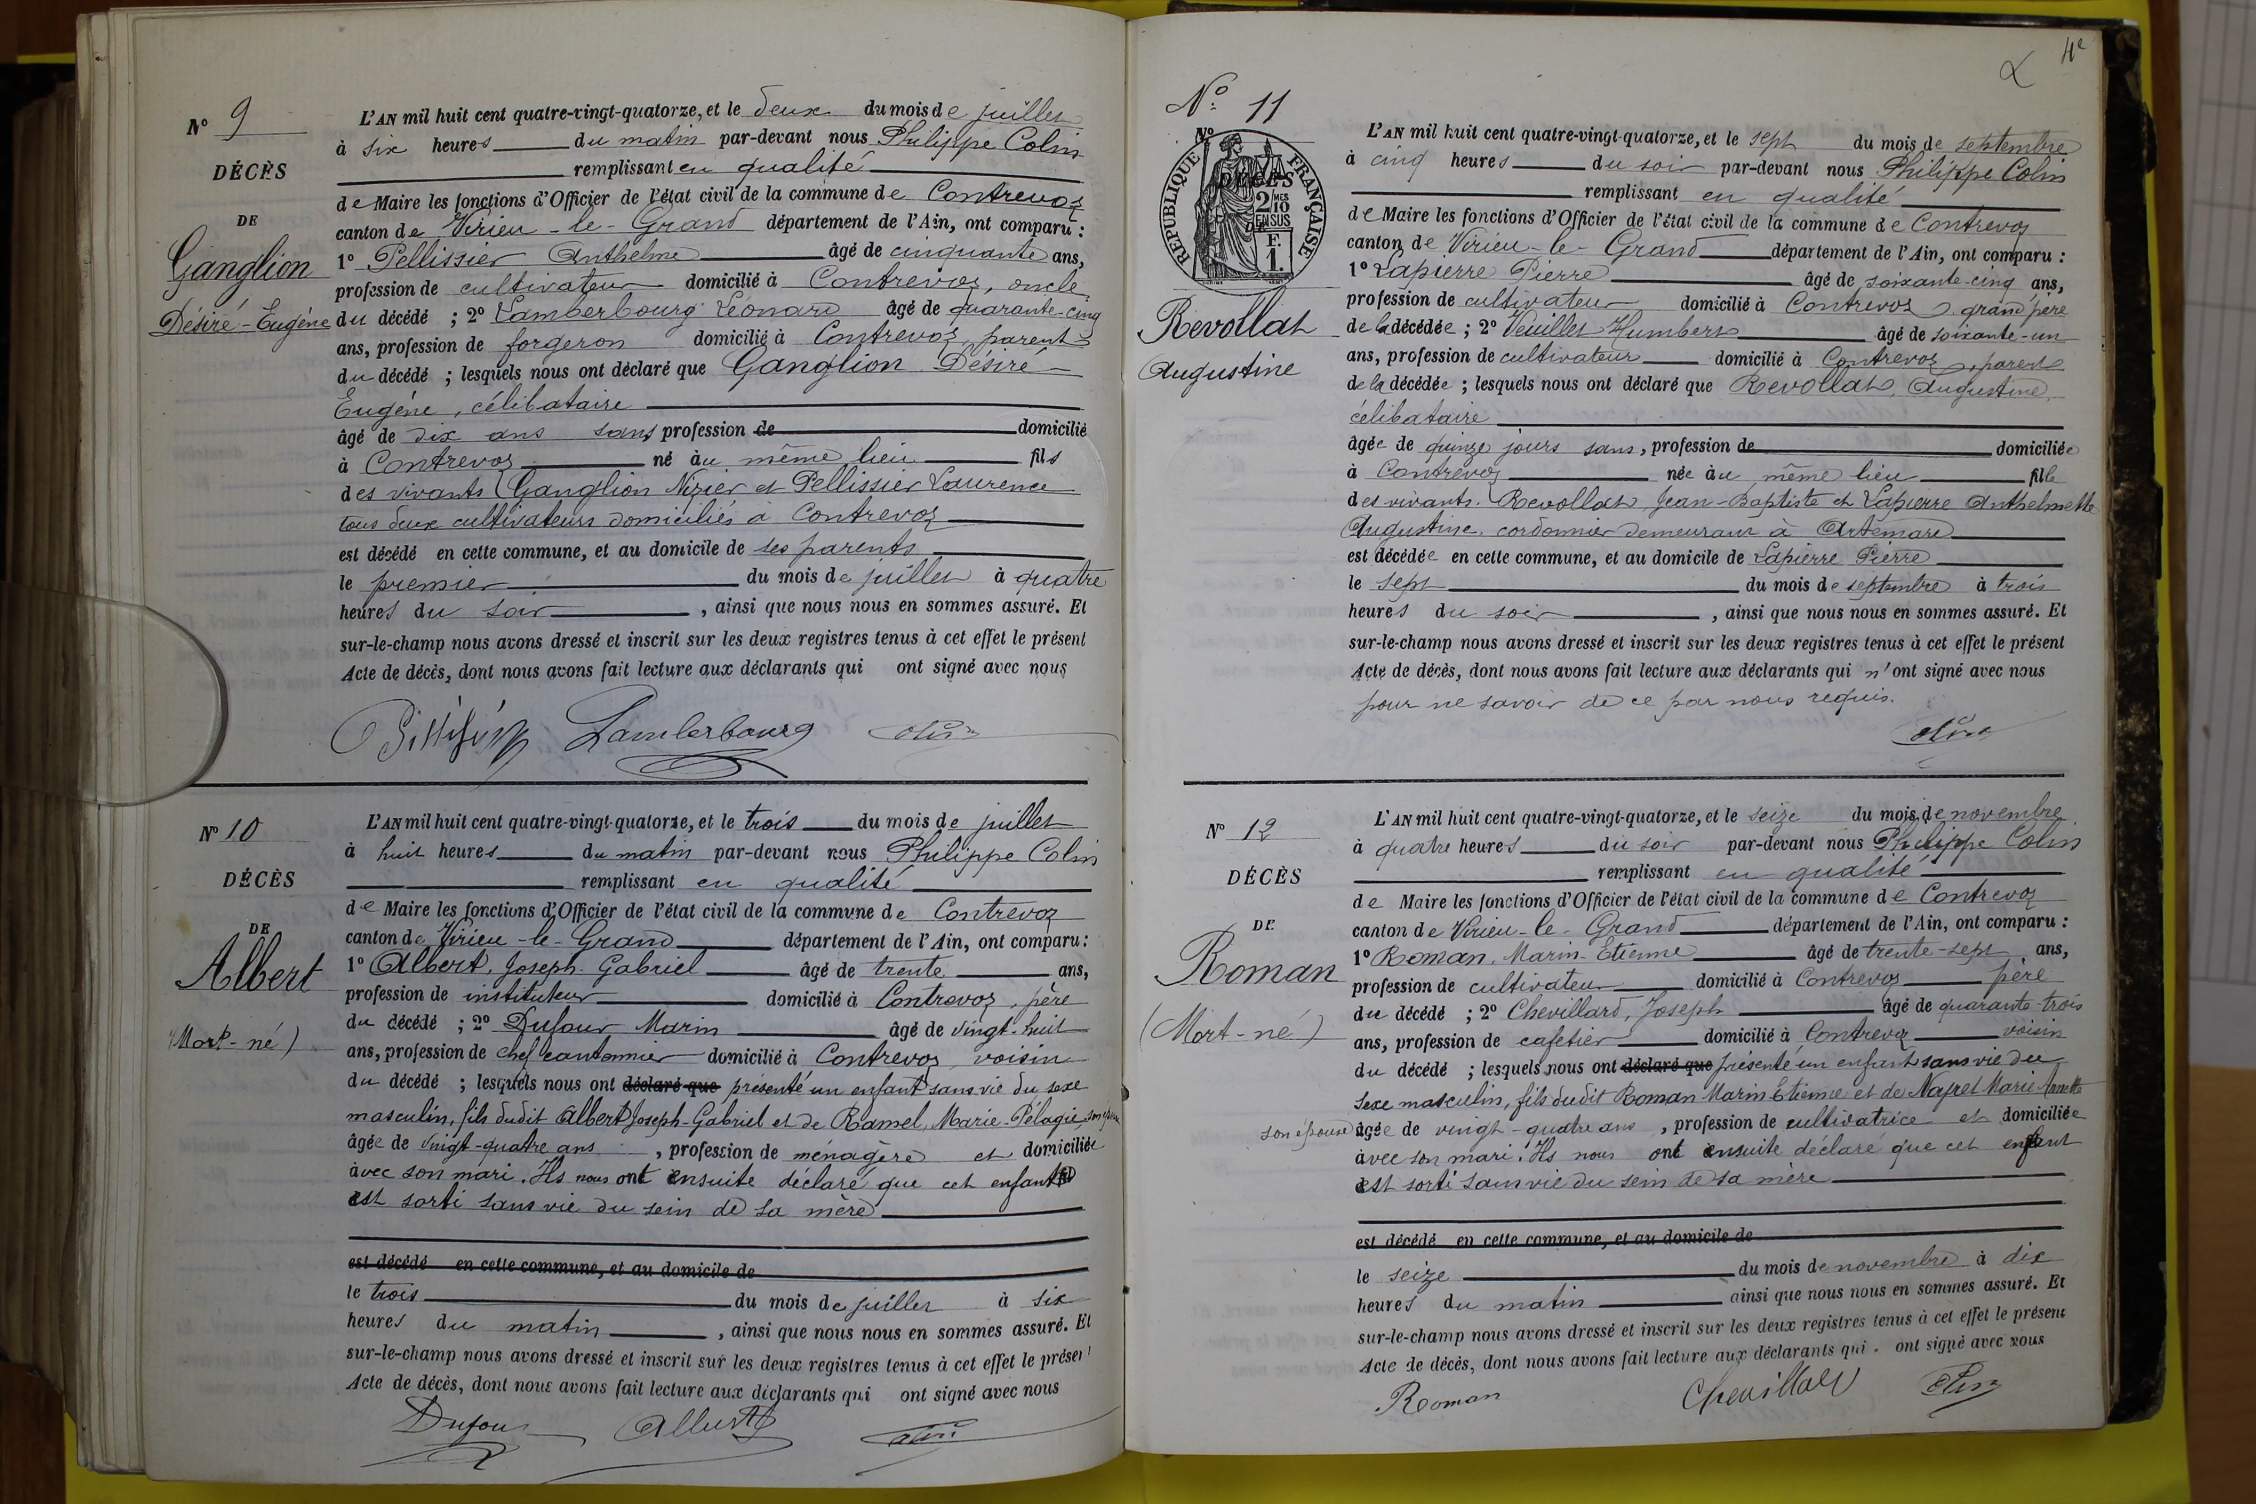 Nº 9
DÉCÈS
DE
Ganglion
Désiré-Eugène
L'AN mil huit cent quatre-vingt-quatorze, et le deux du mois de juillet
à six heures du matin par-devant nous Philippe Colin
remplissant en qualité
de Maire les fonctions d'Officier de l'état civil de la commune de Contrevoz
canton de Virieu-le-Grand département de l'Ain, ont comparu :
1º Pellissier Anthelme âgé de cinquante ans,
profession de cultivateur domicilié à Contrevoz, oncle
du décédé ; 2º Lamberbourg Léonard âgé de quarante-cinq
ans, profession de forgeron domicilié à Contrevoz, parent
du décédé ; lesquels nous ont déclaré que Ganglion Désiré
Eugène, célibataire
âgé de dix ans sans profession de domicilié
à Contrevoz né au même lieu fils
des vivants Ganglion Nizier et Pellissier Laurence
tous deux cultivateurs domiciliés à Contrevoz
est décédé en cette commune, et au domicile de ses parents
le premier du mois de juillet à quatre
heures du soir, ainsi que nous nous en sommes assuré. Et
sur-le-champ nous avons dressé et inscrit sur les deux registres tenus à cet effet le présent
Acte de décès, dont nous avons fait lecture aux déclarants qui ont signé avec nous
Lamberbourg Colin
Nº 10
DÉCÈS
DE
Albert
(Mort-né)
L'AN mil huit cent quatre-vingt-quatorze, et le trois du mois de juillet
à huit heures du matin par-devant nous Philippe Colin
remplissant en qualité
de Maire les fonctions d'Officier de l'état civil de la commune de Contrevoz
canton de Virieu-le-Grand département de l'Ain, ont comparu :
1º Albert, Joseph-Gabriel âgé de trente ans,
profession de instituteur domicilié à Contrevoz, père
du décédé ; 2º Dufour Marin âgé de vingt-huit
ans, profession de chef cantonnier domicilié à Contrevoz, voisin
du décédé ; lesquels nous ont déclaré que présenté un enfant sans vie du sexe
masculin, fils dudit Albert Joseph-Gabriel et de Ramel, Marie-Pélagie son épouse
âgée de vingt-quatre ans, profession de ménagère et domiciliée
avec son mari. Ils nous ont ensuite déclaré que cet enfant
est sorti sans vie du sein de sa mère
est décédé en cette commune, et au domicile de
le trois du mois de juillet à six
heures du matin, ainsi que nous nous en sommes assuré. Et
sur-le-champ nous avons dressé et inscrit sur les deux registres tenus à cet effet le présent
Acte de décès, dont nous avons fait lecture aux déclarants qui ont signé avec nous
Dufour Albert Colin
4e
Nº 11
Nº
DÉCÈS
DE
RÉPUBLIQUE FRANÇAISE
2/10MES
EN SUS
F.
1.
Revollat
Augustine
L'AN mil huit cent quatre-vingt-quatorze, et le sept du mois de septembre
à cinq heures du soir par-devant nous Philippe Colin
remplissant en qualité
de Maire les fonctions d'Officier de l'état civil de la commune de Contrevoz
canton de Virieu-le-Grand département de l'Ain, ont comparu :
1º Lapierre Pierre âgé de soixante-cinq ans,
profession de cultivateur domicilié à Contrevoz, grand père
de la décédée ; 2º Veuillet Humbert âgé de soixante-un
ans, profession de cultivateur domicilié à Contrevoz, parent
de la décédée ; lesquels nous ont déclaré que Revollat, Augustine,
célibataire
âgée de quinze jours sans, profession de domiciliée
à Contrevoz née au même lieu fille
des vivants Revollat Jean-Baptiste et Lapierre Anthelmette
Augustine, cordonnier demeurant à Artemare
est décédée en cette commune, et au domicile de Lapierre Pierre
le sept du mois de septembre à trois
heures du soir, ainsi que nous nous en sommes assuré. Et
sur-le-champ nous avons dressé et inscrit sur les deux registres tenus à cet effet le présent
Acte de décès, dont nous avons fait lecture aux déclarants qui n'ont signé avec nous
pour ne savoir de ce par nous requis.
Colin
Nº 12
DÉCÈS
DE
Roman
(Mort-né)
L'AN mil huit cent quatre-vingt-quatorze, et le seize du mois de novembre
à quatre heures du soir par-devant nous Philippe Colin
remplissant en qualité
de Maire les fonctions d'Officier de l'état civil de la commune de Contrevoz
canton de Virieu-le-Grand département de l'Ain, ont comparu :
1º Roman, Marin-Etienne âgé de trente-sept ans,
profession de cultivateur domicilié à Contrevoz père
du décédé ; 2º Chevillard, Joseph âgé de quarante-trois
ans, profession de cafetier domicilié à Contrevoz voisin
du décédé ; lesquels nous ont déclaré que présenté un enfant sans vie du
sexe masculin, fils dudit Roman Marin Etienne et de Nayret Marie Annette
son épouse âgée de vingt-quatre ans, profession de cultivatrice et domiciliée
avec son mari. Ils nous ont ensuite déclaré que cet enfant
est sorti sans vie du sein de sa mère
est décédé en cette commune, et au domicile de
le seize du mois de novembre à dix
heures du matin ainsi que nous nous en sommes assuré. Et
sur-le-champ nous avons dressé et inscrit sur les deux registres tenus à cet effet le présent
Acte de décès, dont nous avons fait lecture aux déclarants qui ont signé avec nous
Roman Chevillard Colin